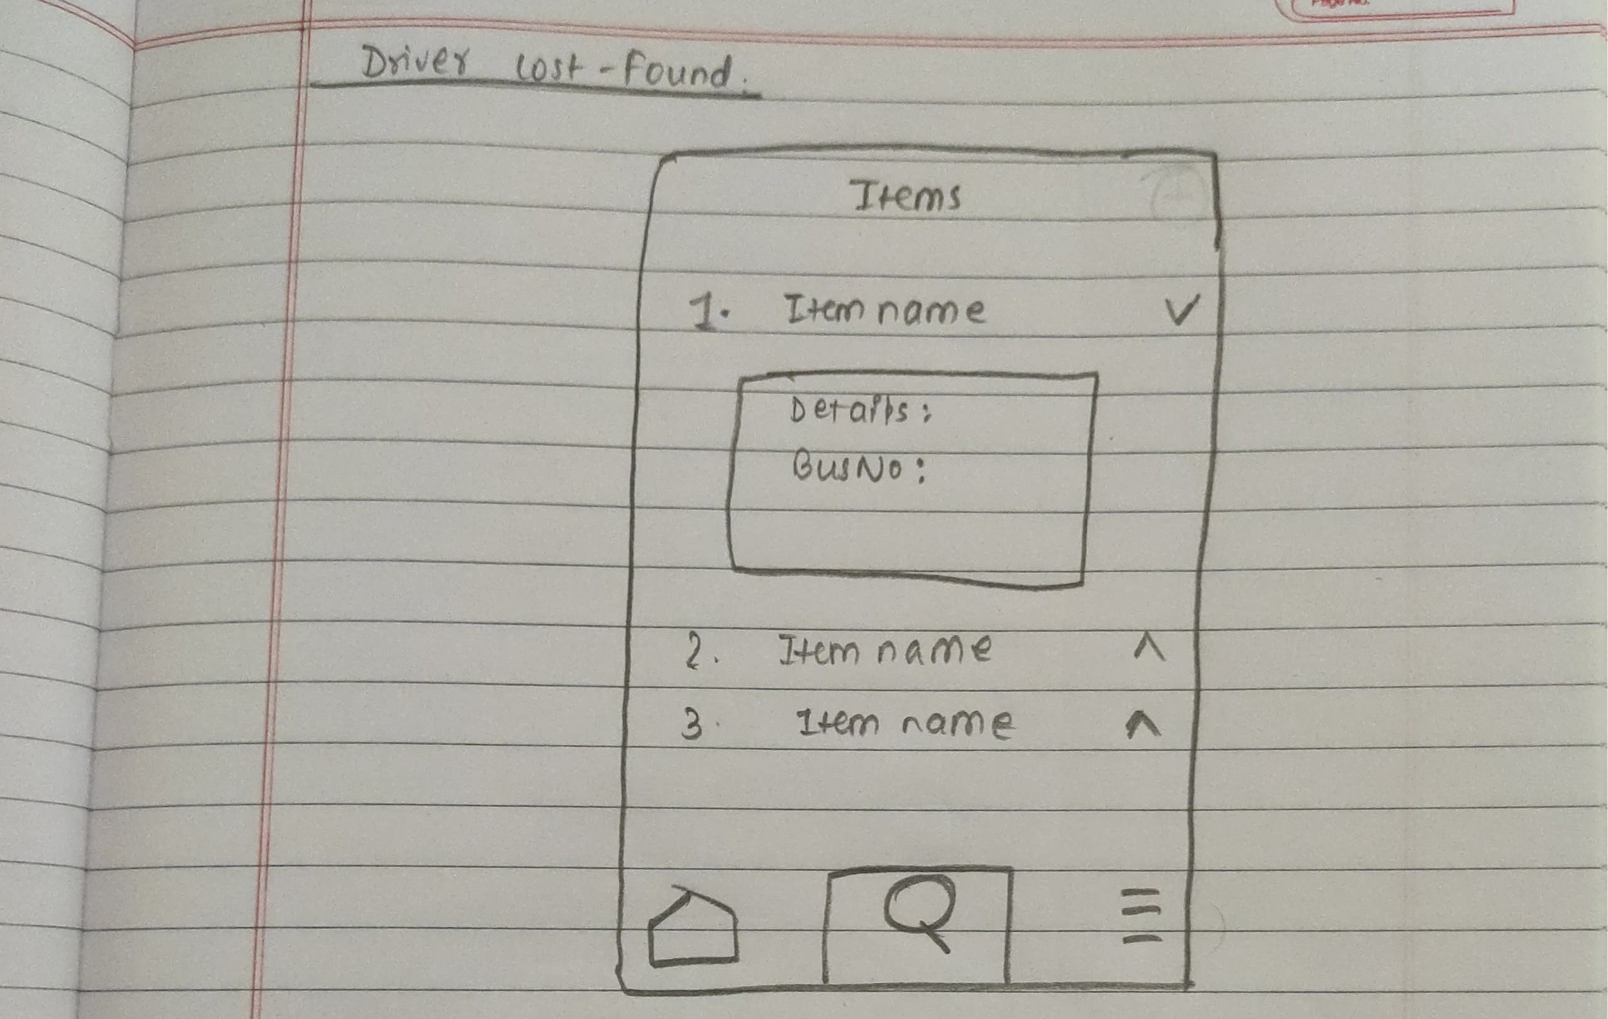 Page No.
Driver Lost-Found.
Items
1. Item name
Details:
Bus No:
2. Item name
3. Item name